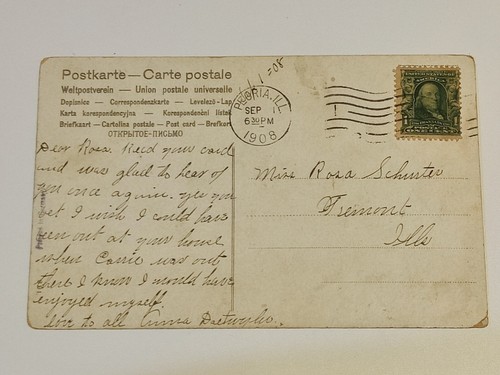 Postkarte — Carte postale
Weltpostverein — Union postale universelle
Dopisnice — Correspondenzkarte — Levelező-Lap
Karta korespondencyjna — Korespondenční lístek
Briefkaart — Cartolina postale — Post card — Brefkort
ОТКРЫТОЕ-ПИСЬМО
1-1-08
PEORIA, ILL.
SEP 1
6 30 PM
1908
Dear Rosa. Rec'd your card
and was glad to hear of
you once again. yes you
bet I wish I could have
been out at your house
when Carrie was out
there I know I would have
enjoyed myself.
love to all Anna
Miss Rosa Schurter
Tremont
Ills